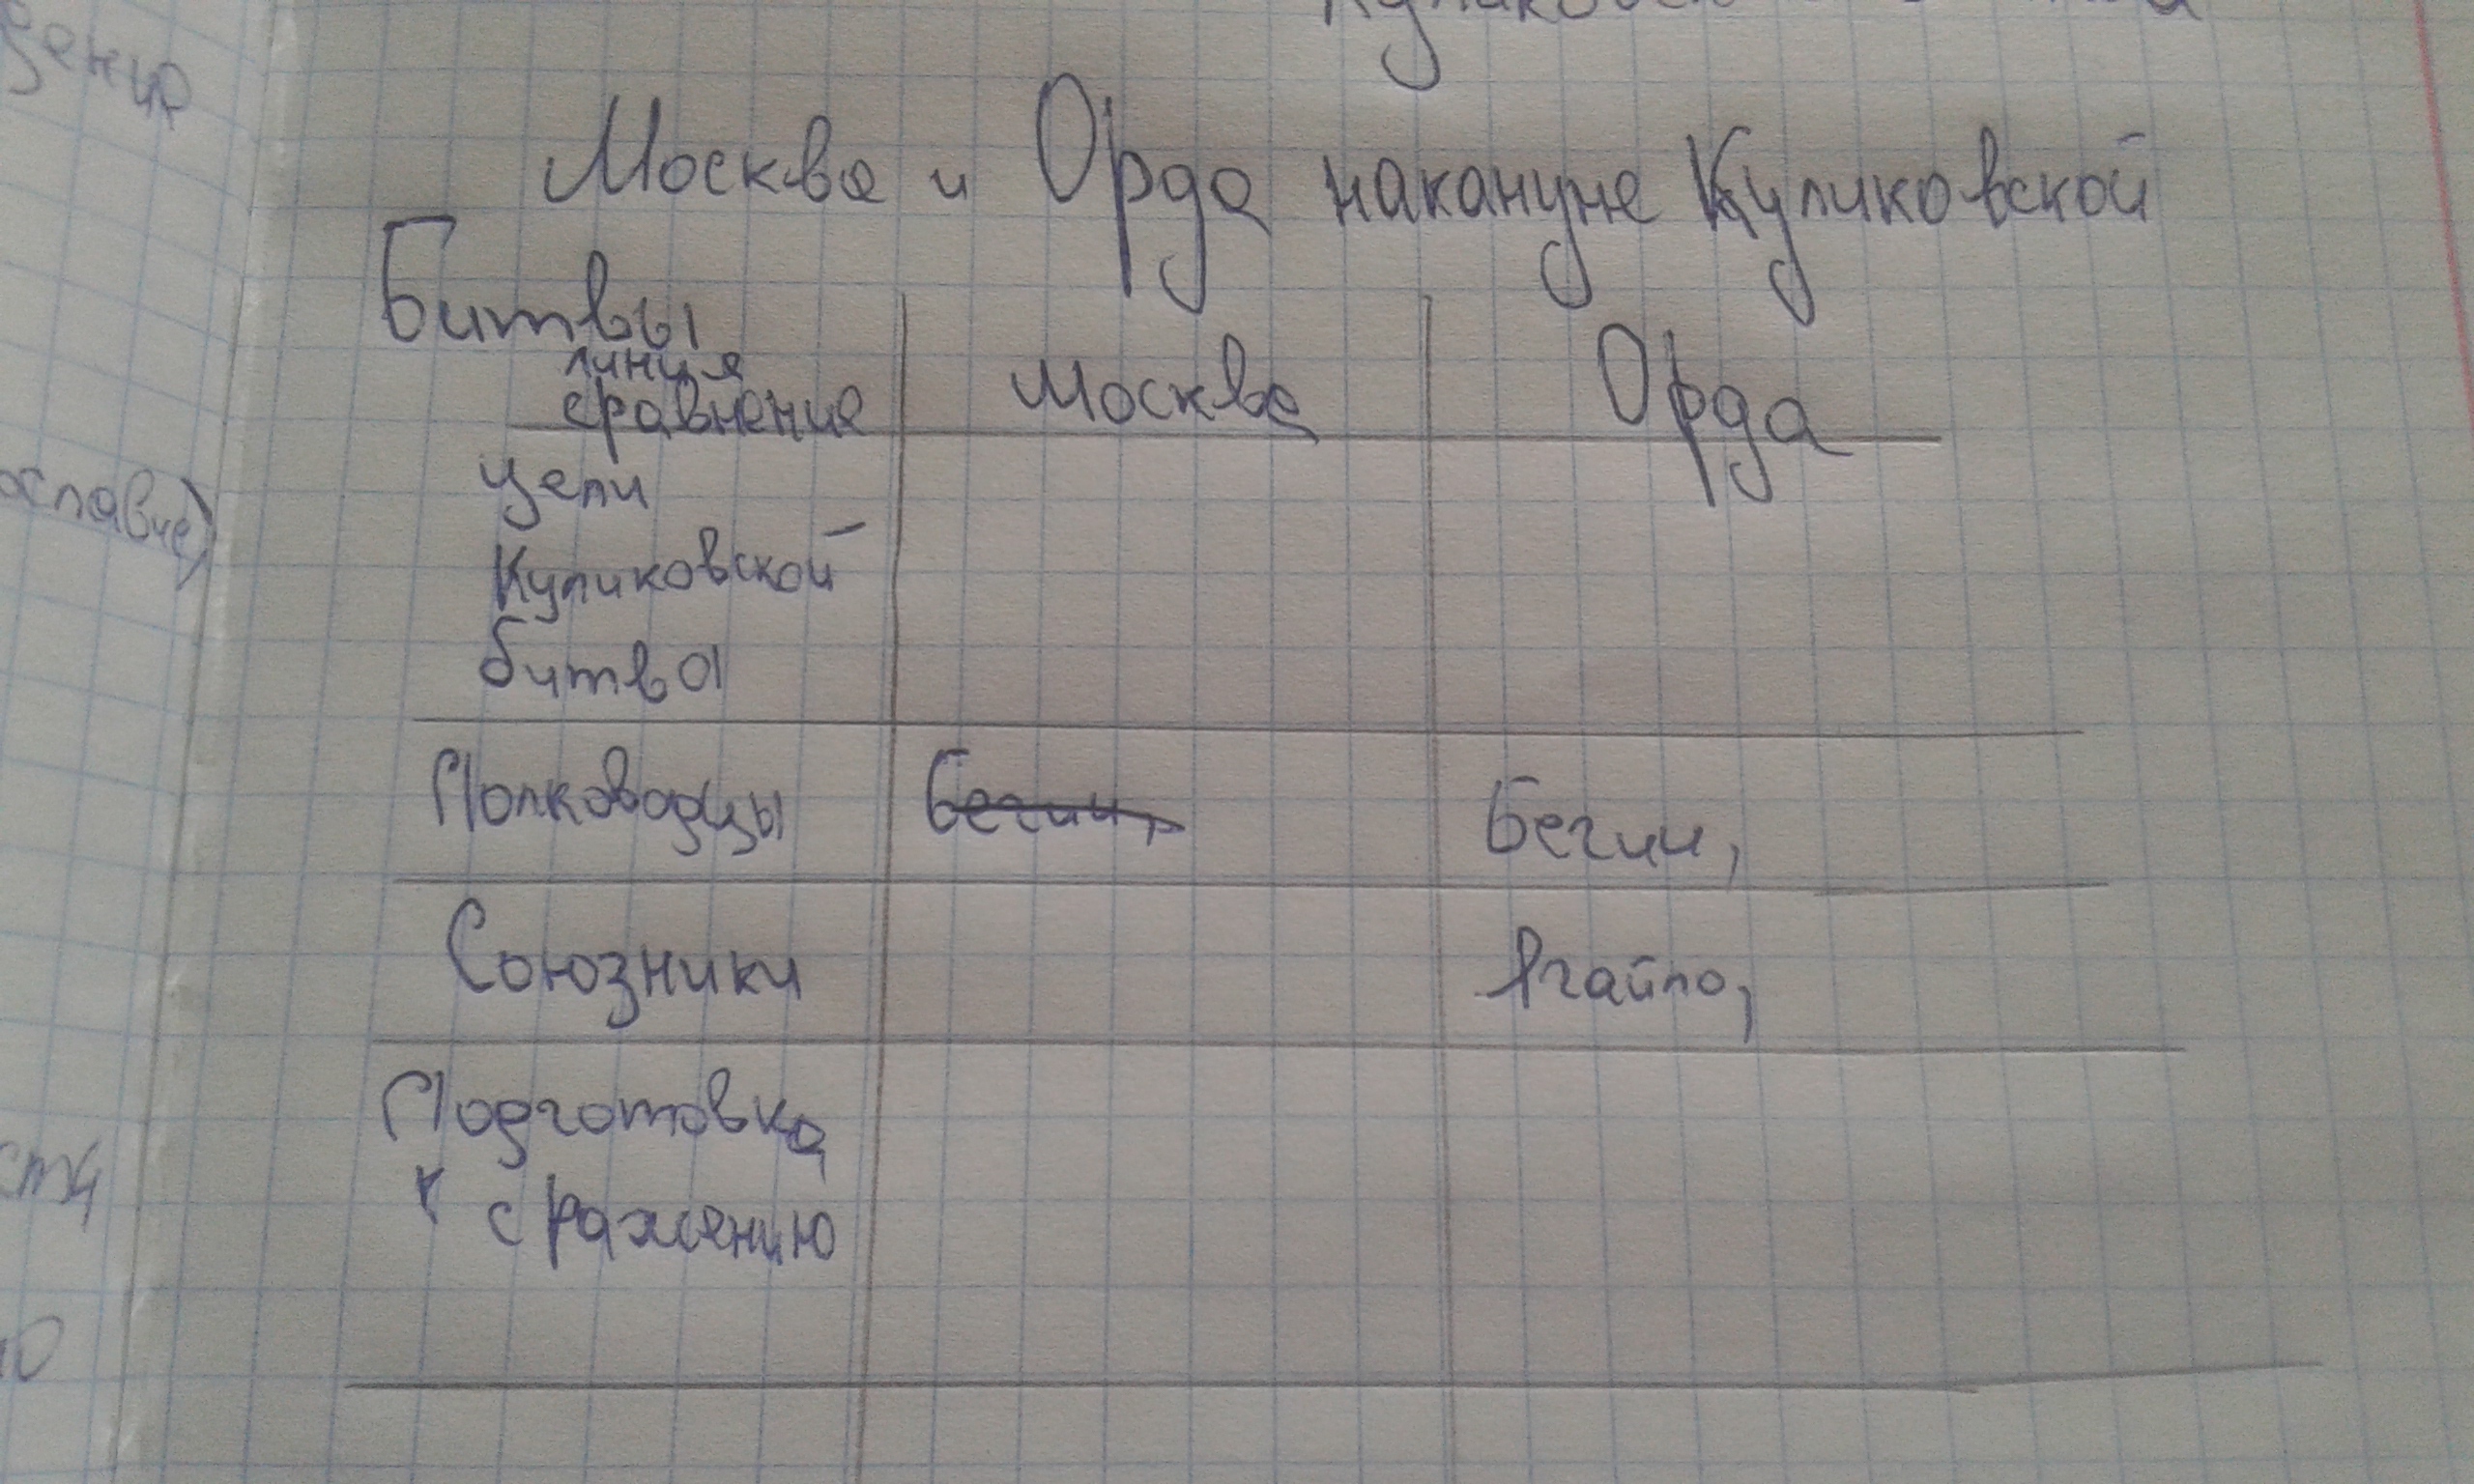 Москва и Орда накануне Куликовской
Битвы
линия
сравнение
Москва
Орда
цели
Куликовской
битва
Полководцы
Бегич,
Бегич,
Союзники
Ягайло,
Подготовка
к сражению